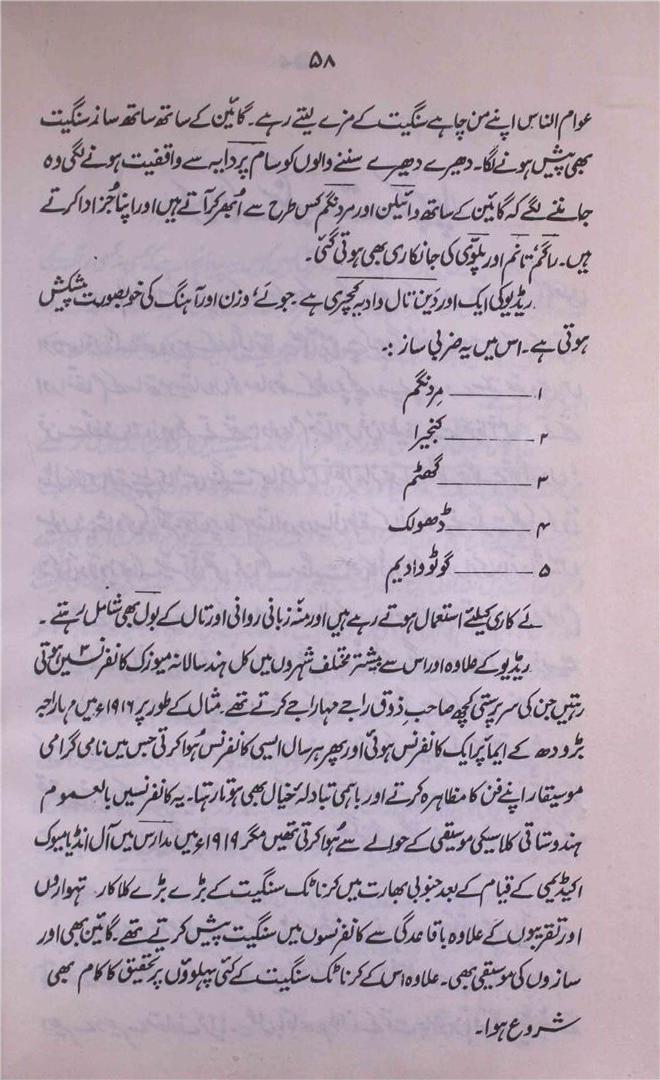 ۵۸
عوام الناس اپنے من چاہے سنگیت کے مزے لیتے رہے۔ گائین کے ساتھ ساتھ ساز سنگیت
بھی پیش ہونے لگا۔ دھیرے دھیرے سننے والوں کو سام پردایہ سے واقفیت ہونے لگی وہ
جاننے لگے کہ گائین کے ساتھ وائیلن اور مردنگم کس طرح سے اُبھر کر آتے ہیں اور اپنا جُز ادا کرتے
ہیں۔ راگم، تانم اور پلوّی کی جانکاری بھی ہوتی گئی۔
ریڈیو کی ایک اور دَین تال وادیہ کچیری ہے۔ جو لَے، وزن اور آہنگ کی خوبصورت پیشکش
ہوتی ہے۔ اس میں یہ ضربی ساز :۔
۱۔ مردنگم
۲۔ کنجیرا
۳۔ گھٹم
۴۔ ڈھولک
۵۔ گوٹو وادیم
لَے کاری کیلئے استعمال ہوتے رہے ہیں اور منہ زبانی روانی اور تال کے بول بھی شامل رہتے۔
ریڈیو کے علاوہ اور اس سے پیشتر مختلف شہروں میں کل ہند سالانہ میوزک کانفرنسیں ہوتی
رہتیں جن کی سرپرستی کچھ صاحبِ ذوق راجے مہاراجے کرتے تھے۔ مثال کے طور پر ۱۹۱۶ء میں مہاراجہ
بڑودھ کے ایما پر ایک کانفرنس ہوئی اور پھر ہر سال ایسی کانفرنس ہُوا کرتی جس میں نامی گرامی
موسیقار اپنے فن کا مظاہرہ کرتے اور باہمی تبادلۂ خیال بھی ہوتا رہتا۔ یہ کانفرنسیں بالعموم
ہندوستانی کلاسیکی موسیقی کے حوالے سے ہُوا کرتی تھیں مگر ۱۹۱۹ء میں مدارس میں آل انڈیا میوزک
اکیڈیمی کے قیام کے بعد جنوبی بھارت میں کرناٹک سنگیت کے بڑے بڑے کلاکار تہواروں
اور تقریبوں کے علاوہ باقاعدگی سے کانفرنسوں میں سنگیت پیش کرتے تھے۔ گائین بھی اور
سازوں کی موسیقی بھی۔ علاوہ اس کے کرناٹک سنگیت کے کئی پہلوؤں پر تحقیق کا کام بھی
شروع ہوا۔